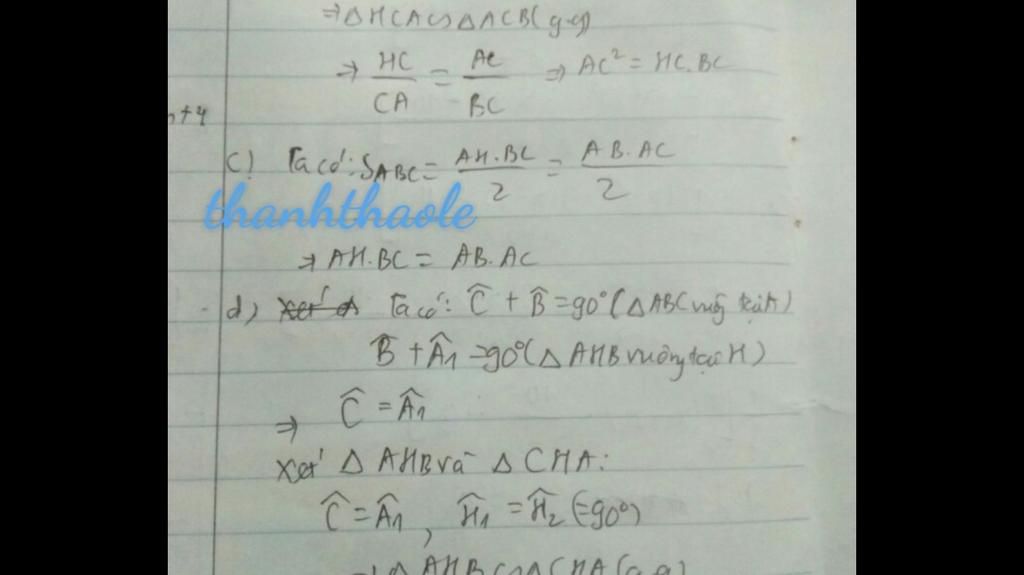 ⇒ΔHCA∽ΔACB(g-g)
⇒ HC/CA = AC/BC ⇒ AC² = HC.BC
+4
c) Ta có: SABC = AH.BC/2 = AB.AC/2
thanhthaole
⇒ AH.BC = AB.AC
d) Ta có: Ĉ + B̂ = 90° (Δ ABC vuông tại A)
B̂ + Â₁ = 90° (Δ AHB vuông tại H)
⇒ Ĉ = Â₁
Xét Δ AHB và Δ CHA:
Ĉ = Â₁, Ĥ₁ = Ĥ₂ (=90°)
⇒ Δ AHB ∽ Δ CHA (g.g)